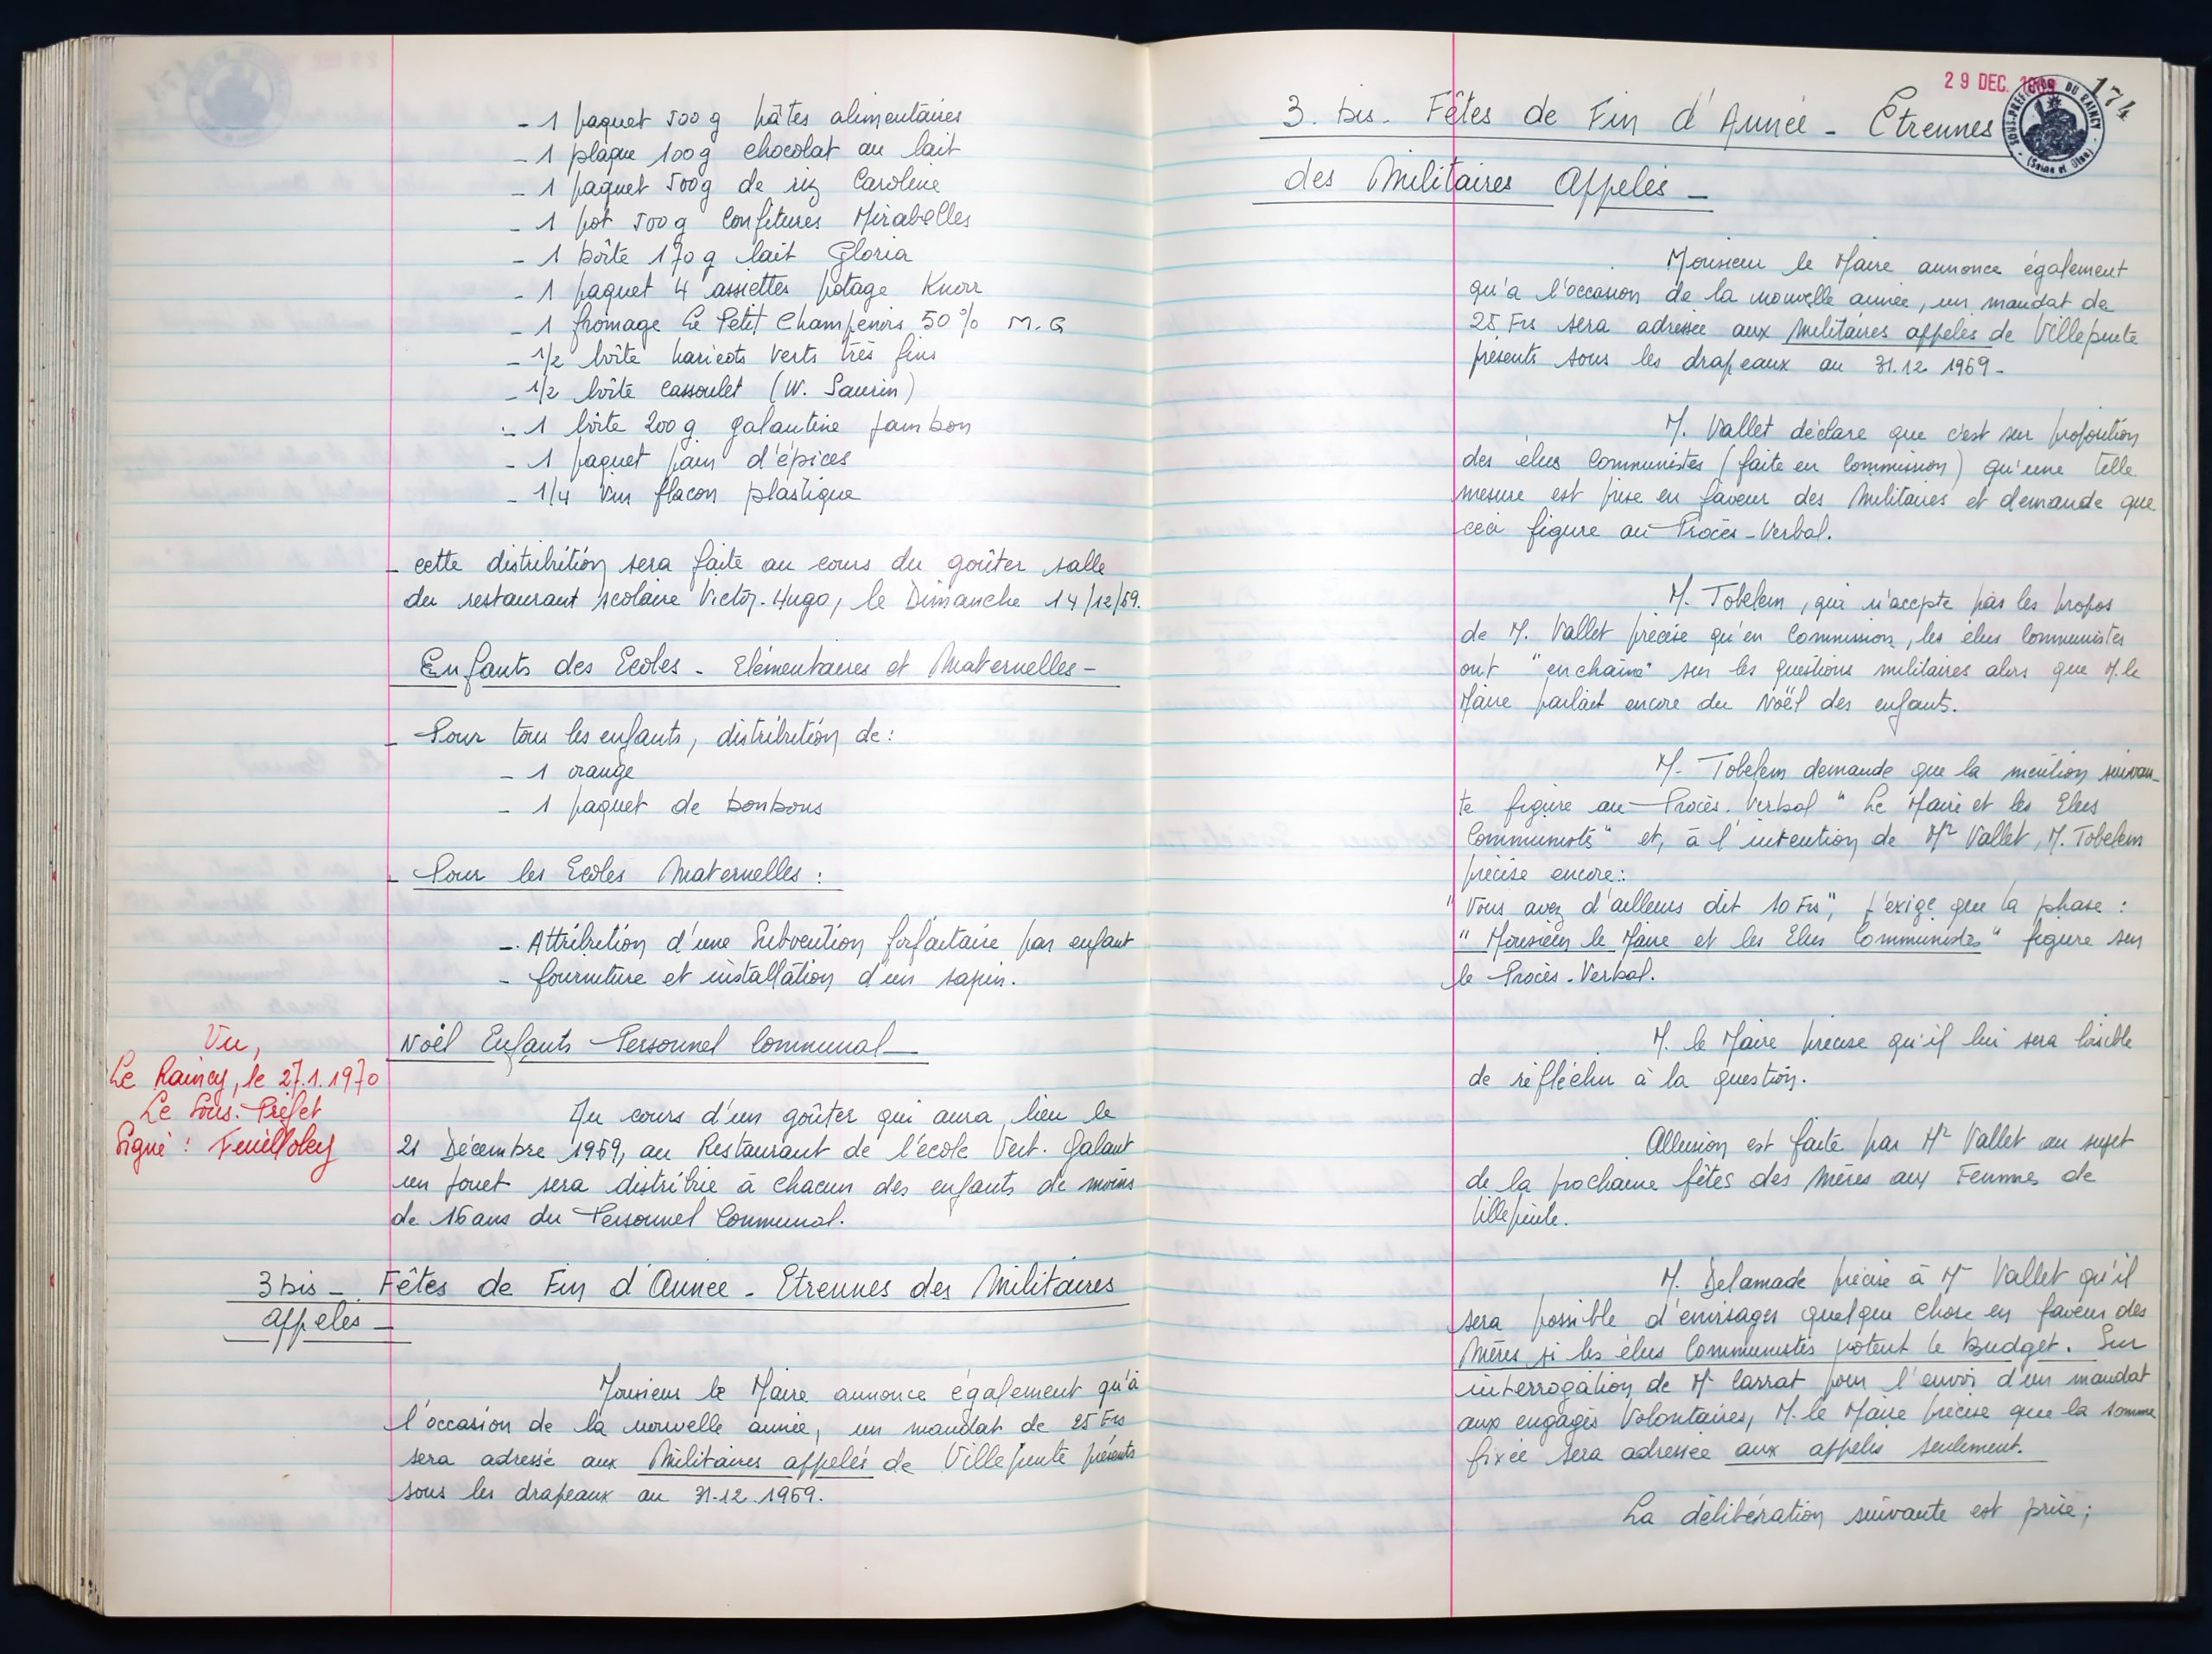 - 1 paquet 500 g pâtes alimentaires
- 1 plaque 100 g chocolat au lait
- 1 paquet 500 g de riz Caroline
- 1 pot 500 g confitures Mirabelles
- 1 boîte 170 g lait Gloria
- 1 paquet 4 assiettes potage Knorr
- 1 fromage Le Petit Champenois 50 % M.G
- 1/2 boîte haricots verts très fins
- 1/2 boîte cassoulet (W. Saurin)
- 1 boîte 200 g galantine jambon
- 1 paquet pain d'épices
- 1/4 vin flacon plastique
- cette distribution sera faite au cours du goûter salle
du restaurant scolaire Victor-Hugo, le Dimanche 14/12/69.
Enfants des Ecoles - Elémentaires et Maternelles -
- Pour tous les enfants, distribution de :
- 1 orange
- 1 paquet de bonbons
- Pour les Ecoles Maternelles :
- Attribution d'une Subvention forfaitaire par enfant
- fourniture et installation d'un sapin.
Noël Enfants Personnel Communal -
Vu,
Le Raincy, le 27.1.1970
Le Sous-Préfet
Signé : Feuilloley
Au cours d'un goûter qui aura lieu le
21 Décembre 1969, au Restaurant de l'école Vert-Galant
un jouet sera distribué à chacun des enfants de moins
de 16 ans du Personnel Communal.
3 bis - Fêtes de Fin d'Année - Etrennes des Militaires
appelés -
Monsieur le Maire annonce également qu'à
l'occasion de la nouvelle année, un mandat de 25 Frs
sera adressé aux Militaires appelés de Villepinte présents
sous les drapeaux au 31-12-1969.
29 DEC. 1969
174
SOUS-PRÉFECTURE DU RAINCY
(Seine et Oise)
3. bis. Fêtes de Fin d'Année - Etrennes
des Militaires Appelés -
Monsieur le Maire annonce également
qu'a l'occasion de la nouvelle année, un mandat de
25 Frs sera adressée aux Militaires appelés de Villepinte
présents sous les drapeaux au 31.12.1969 -
M. Vallet déclare que c'est sur proposition
des élus Communistes (faite en Commission) qu'une telle
mesure est prise en faveur des Militaires et demande que
ceci figure au Procès-Verbal.
M. Tobelem, qui n'accepte pas les propos
de M. Vallet précise qu'en Commission, les élus Communistes
ont "enchaîné" sur les questions militaires alors que M. le
Maire parlait encore du Noël des enfants.
M. Tobelem demande que la mention suivan-
te figure au Procès-Verbal "Le Maire et les Elus
Communists" et, à l'intention de Mr Vallet, M. Tobelem
précise encore :
"Vous avez d'ailleurs dit 10 Frs", J'exige que la phase :
"Monsieur le Maire et les Elus Communistes" figure sur
le Procès-Verbal.
M. le Maire précise qu'il lui sera loisible
de réfléchir à la question.
Allusion est faite par Mr Vallet au sujet
de la prochaine fêtes des Mères aux Femmes de
Villepinte.
M. Delamade précise à Mr Vallet qu'il
sera possible d'envisager quelque chose en faveur des
Mères si les élus Communistes votent le Budget. Sur
interrogation de Mr Carrat pour l'envoi d'un mandat
aux engagés Volontaires, M. le Maire précise que la somme
fixée sera adressée aux appelés seulement.
La délibération suivante est prise ;